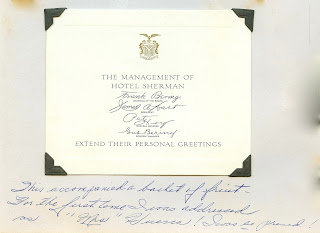 THE MANAGEMENT OF
HOTEL SHERMAN
Frank Bering
James A. Hart
Gus Bering
EXTEND THEIR PERSONAL GREETINGS
This accompanied a basket of fruit.
For the first time I was addressed
as "Mrs" ! I was so proud!